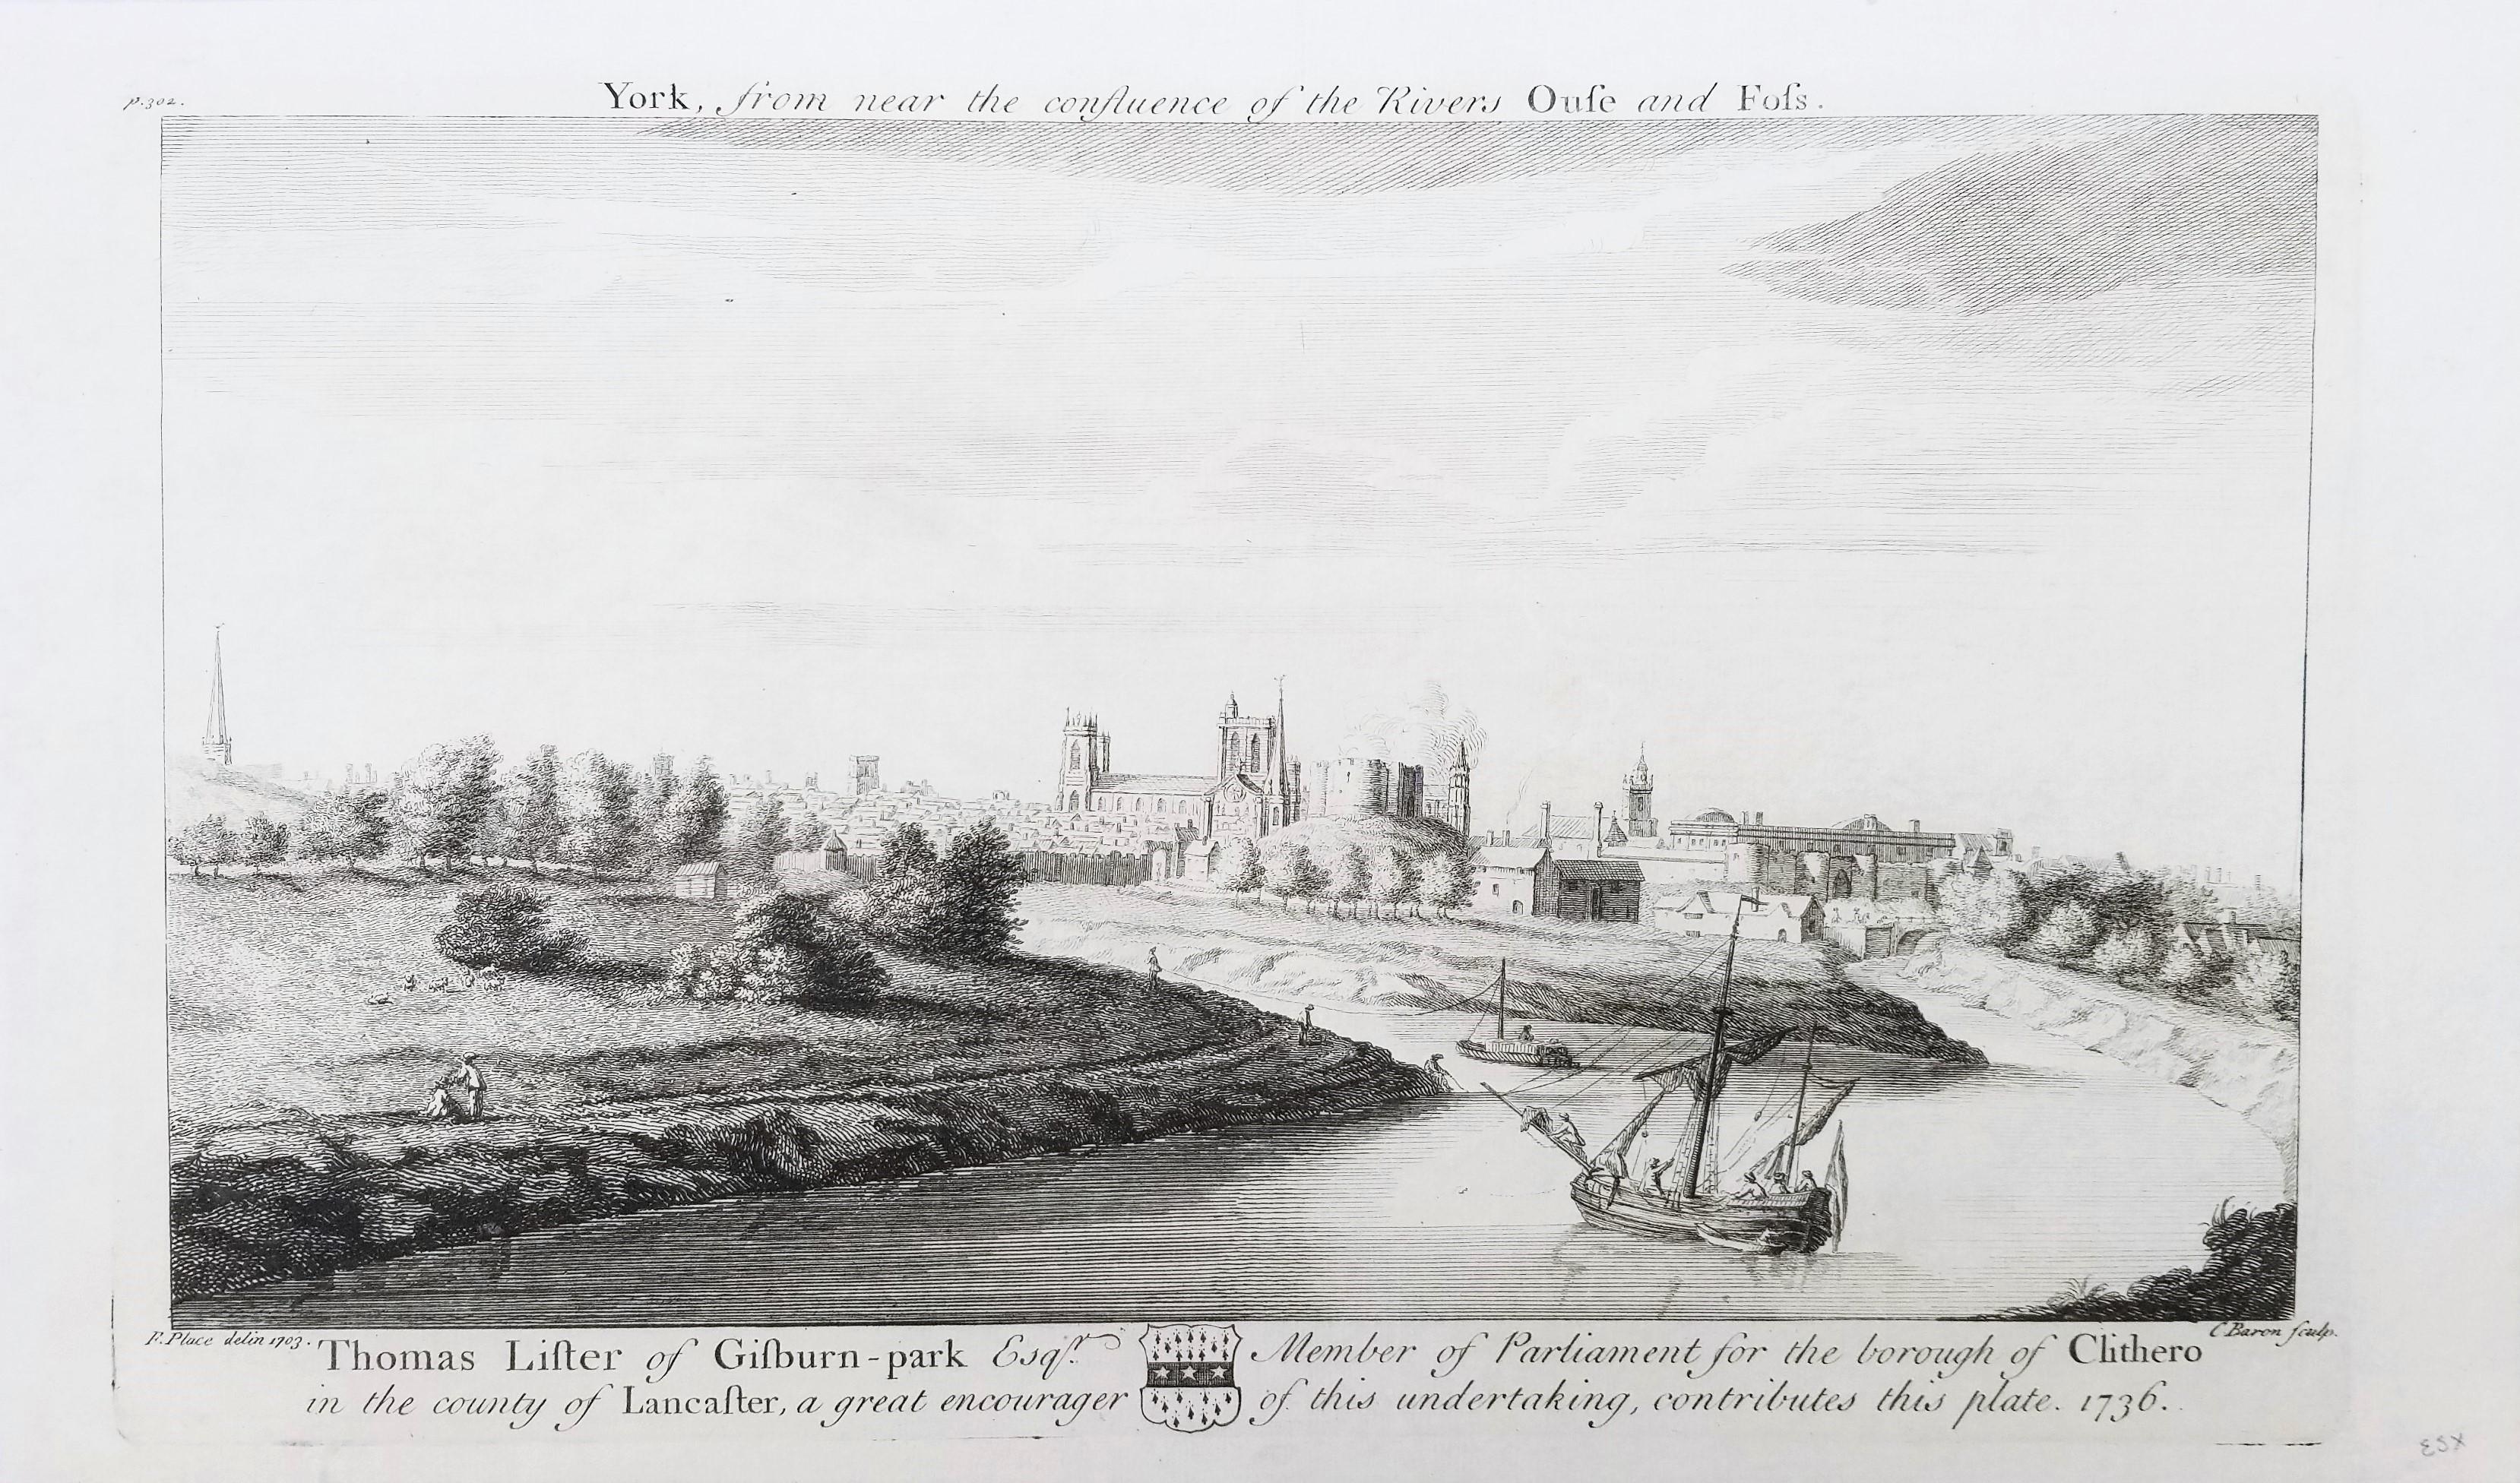 p.302.
York, from near the confluence of the Rivers Ouſe and Foſs.
F. Place delin 1703.
C Baron ſculp.
Thomas Liſter of Giſburn-park Esqſ.ʳ Member of Parliament for the borough of Clithero
in the county of Lancaſter, a great encourager of this undertaking, contributes this plate. 1736.